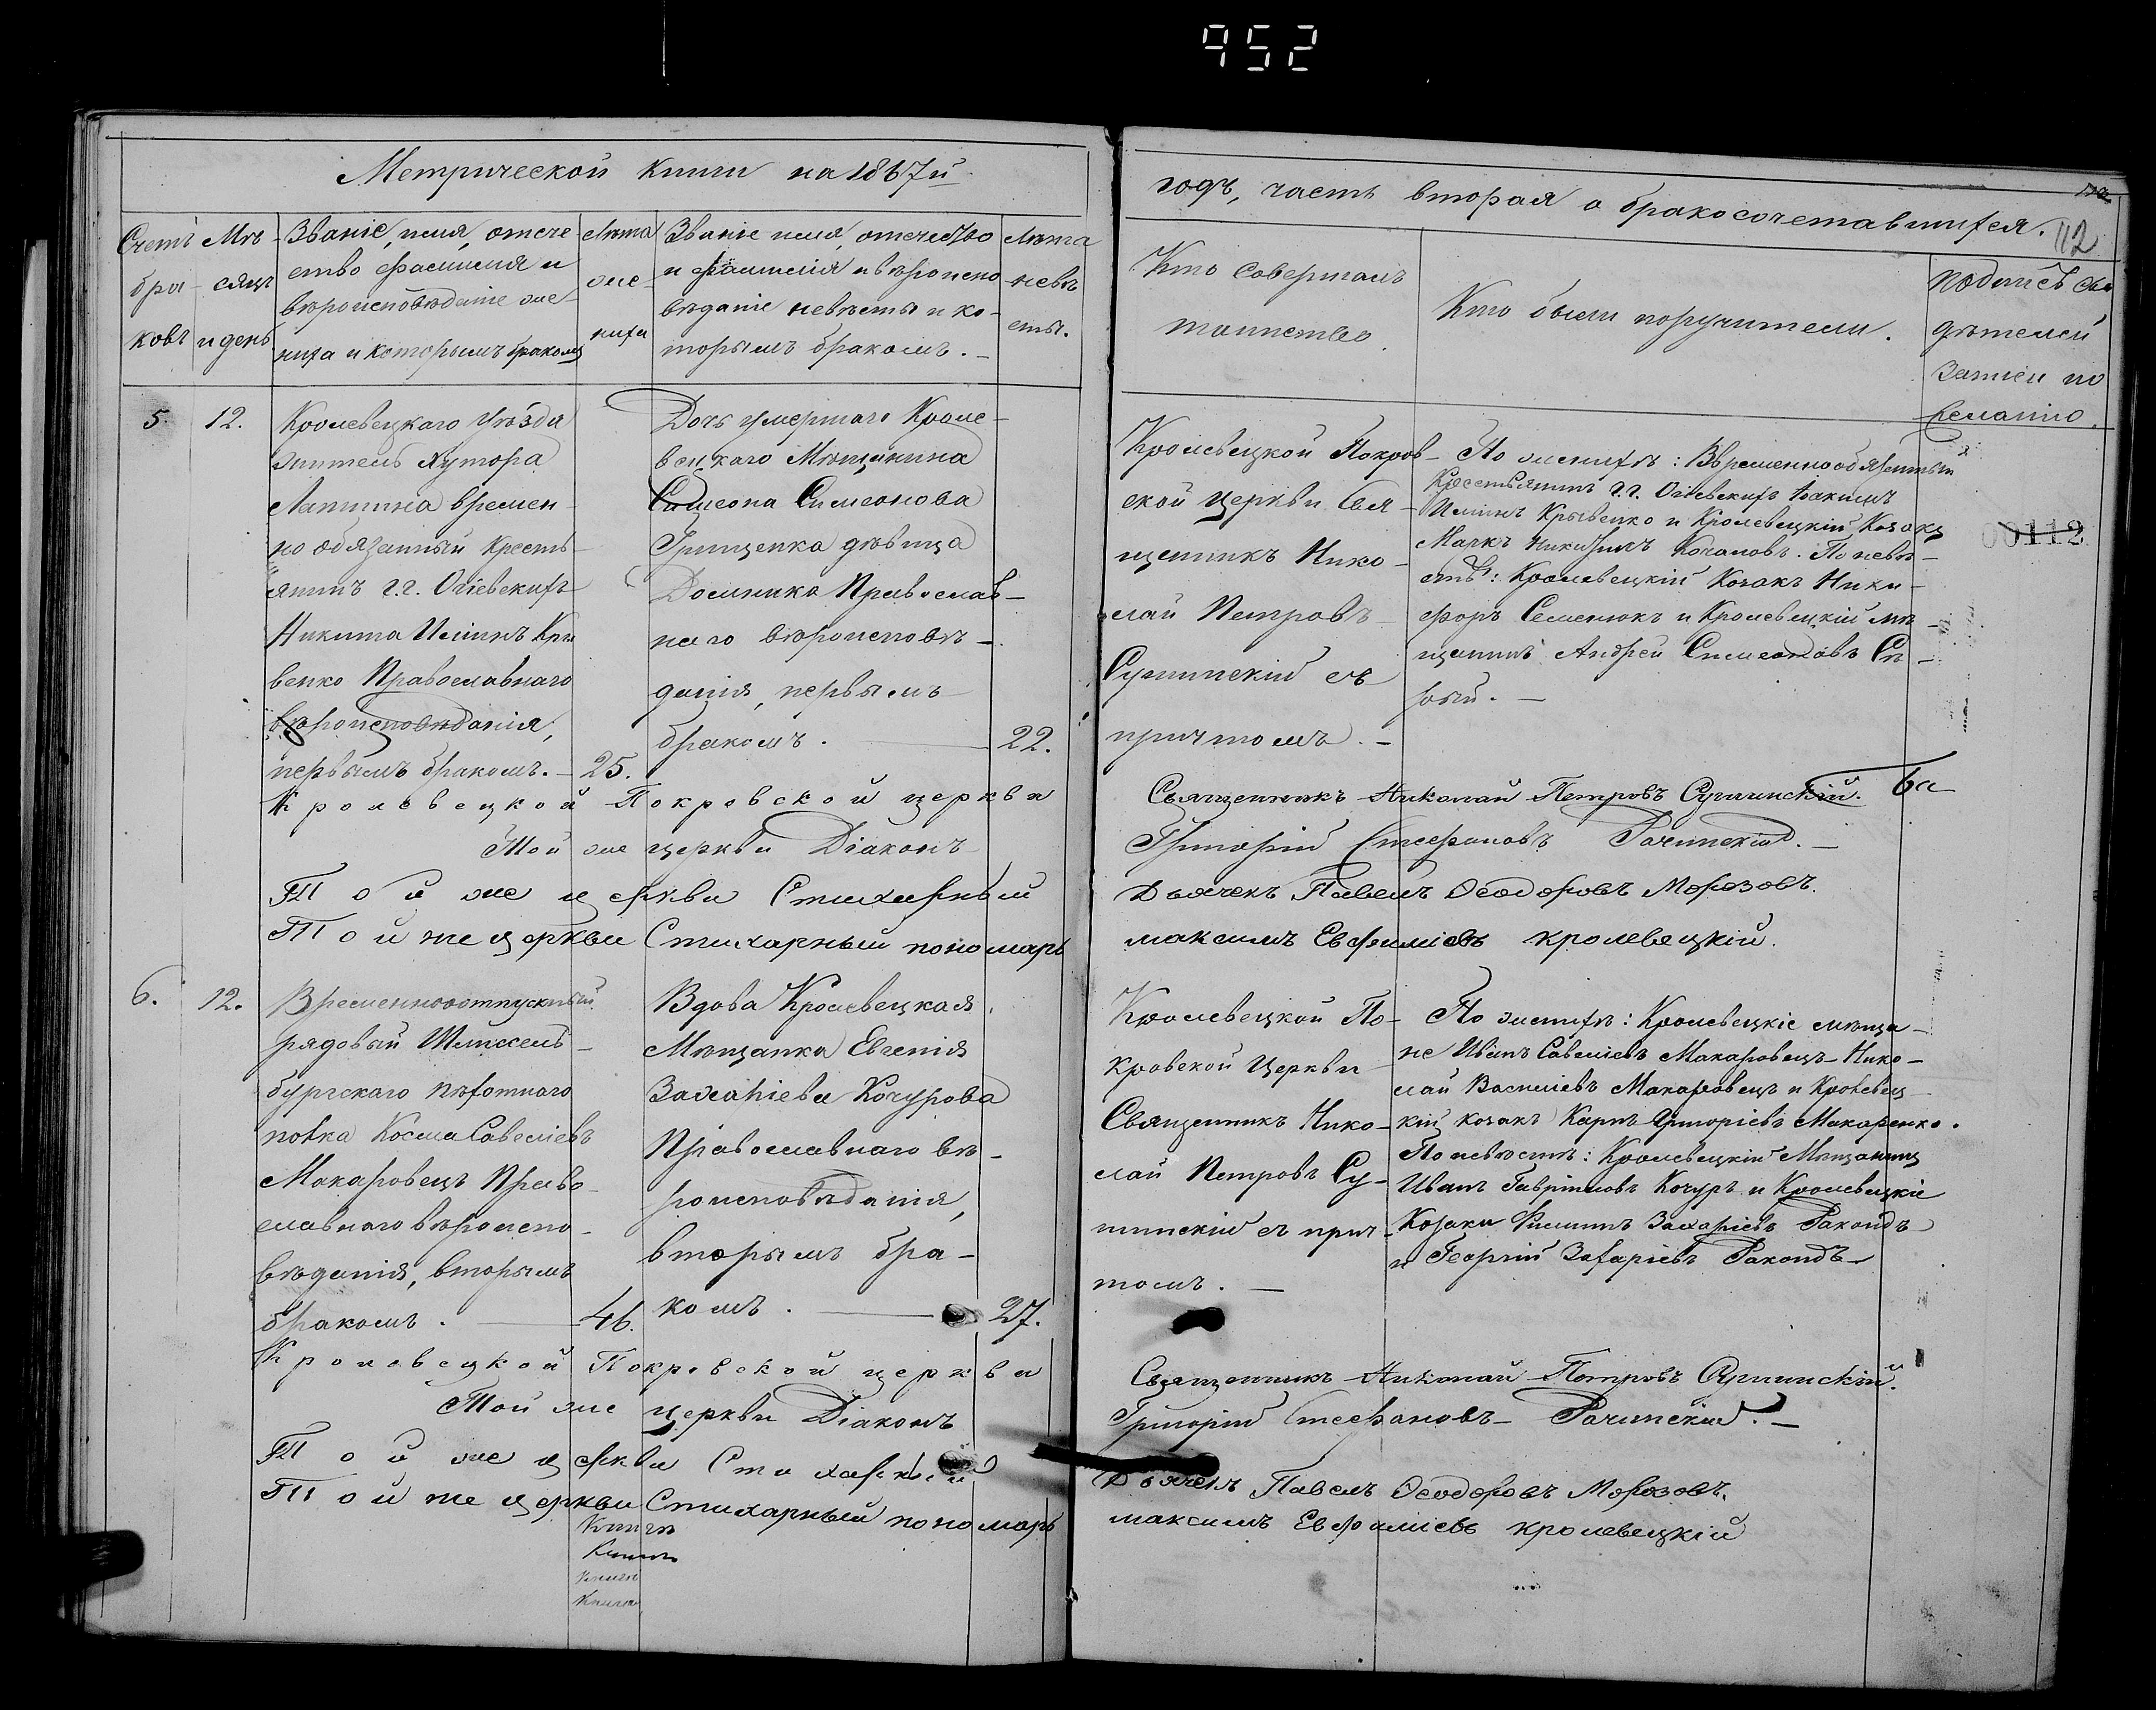 952
Метрической книги на 1867й
годъ, часть вторая о бракосочетавшихся.
112
Счетъ
бра-
ковъ
Мѣ-
сяцъ
и день
Званіе, имя, отече
ство фамилия и
вѣроисповѣданіе же-
ниха и которымъ бракомъ
Лѣта
же-
ниха
Званіе имя, отечество
и фамилія и вѣроиспо
вѣданіе невѣсты и ко-
торымъ бракомъ. –
Лѣта
невѣ
сты.
Кто совершалъ
таинство.
Кто были поручители.
подпись сви
дѣтелей
записи по
желанію.
5.
12.
Кролевецкаго уѣзда
житель хутора
Лапшина времен-
но обязанный кресть-
янинъ г.г. Огіевскихъ
Никита Ильинъ Кри
венко Православнаго
вѣроисповѣданія,
первымъ бракомъ. –
25.
Дочь умершаго Кроле-
вецкаго Мѣщанина
Симеона Симеонова
Грищенка дѣвица
Домника Православ-
наго вѣроисповѣ-
данія, первымъ
бракомъ.
22.
Кролевецкой Покров-
ской церкви Свя-
щенникъ Нико-
лай Петровъ
Сушинскій съ
причтомъ. –
По женихѣ: Временнообязанный
Крестьянинъ г.г. Огіевскихъ Іоакимъ
Ильинъ Кривенко и Кролевецкій Козакъ
Маркъ Никитинъ Кочановъ. По невѣ-
стѣ: Кролевецкій Козакъ Ники-
форъ Семенюкъ и Кролевецкій мѣ-
щанинъ Андрей Симеоновъ Сѣ-
рый. –
00112
Кролевецкой Покровской церкви
Священникъ Николай Петровъ Сушинскій.
Той же церкви Діаконъ
Григорій Стефановъ Рачинскій. –
Той же церкви Стихарный
Дьячекъ Павелъ Ѳеодоровъ Морозовъ.
Той же церкви Стихарный пономарь
максимъ Евфиміевъ кролевецкій.
6.
12.
Временноотпускный
рядовый Шлиссель-
бургскаго пѣхотнаго
полка Косма Савеліевъ
Макаровецъ Право-
славнаго вѣроиспо-
вѣданія, вторымъ
бракомъ.
46.
Вдова Кролевецкая
Мѣщанка Евгенія
Захаріева Кочурова
Православнаго вѣ-
роисповѣданія,
вторымъ бра-
комъ.
27.
Кролевецкой По-
кровской Церкви
Священникъ Нико-
лай Петровъ Су-
шинскій съ прич-
томъ. –
По женихѣ: Кролевецкіе мѣща-
не Иванъ Савеліевъ Макаровецъ Нико-
лай Василіевъ Макаровецъ и Кролевец-
кій козакъ Карпъ Григоріевъ Макаренко.
По невѣстѣ: Кролевецкій Мѣщанинъ
Иванъ Гавріиловъ Кочуръ и Кролевецкіе
Козаки Филиппъ Захаріевъ Ракондъ
и Георгій Захаріевъ Ракондъ
Кролевецкой Покровской церкви
Священникъ Николай Петровъ Сушинскій.
Той же церкви Діаконъ
Григорій Стефановъ Рачинскій. –
Той же церкви Стихарный
Дьячекъ Павелъ Ѳеодоровъ Морозовъ.
Той же церкви Стихарный пономарь
максимъ Евфиміевъ кролевецкій
Книга
Книга
Книга
Книга